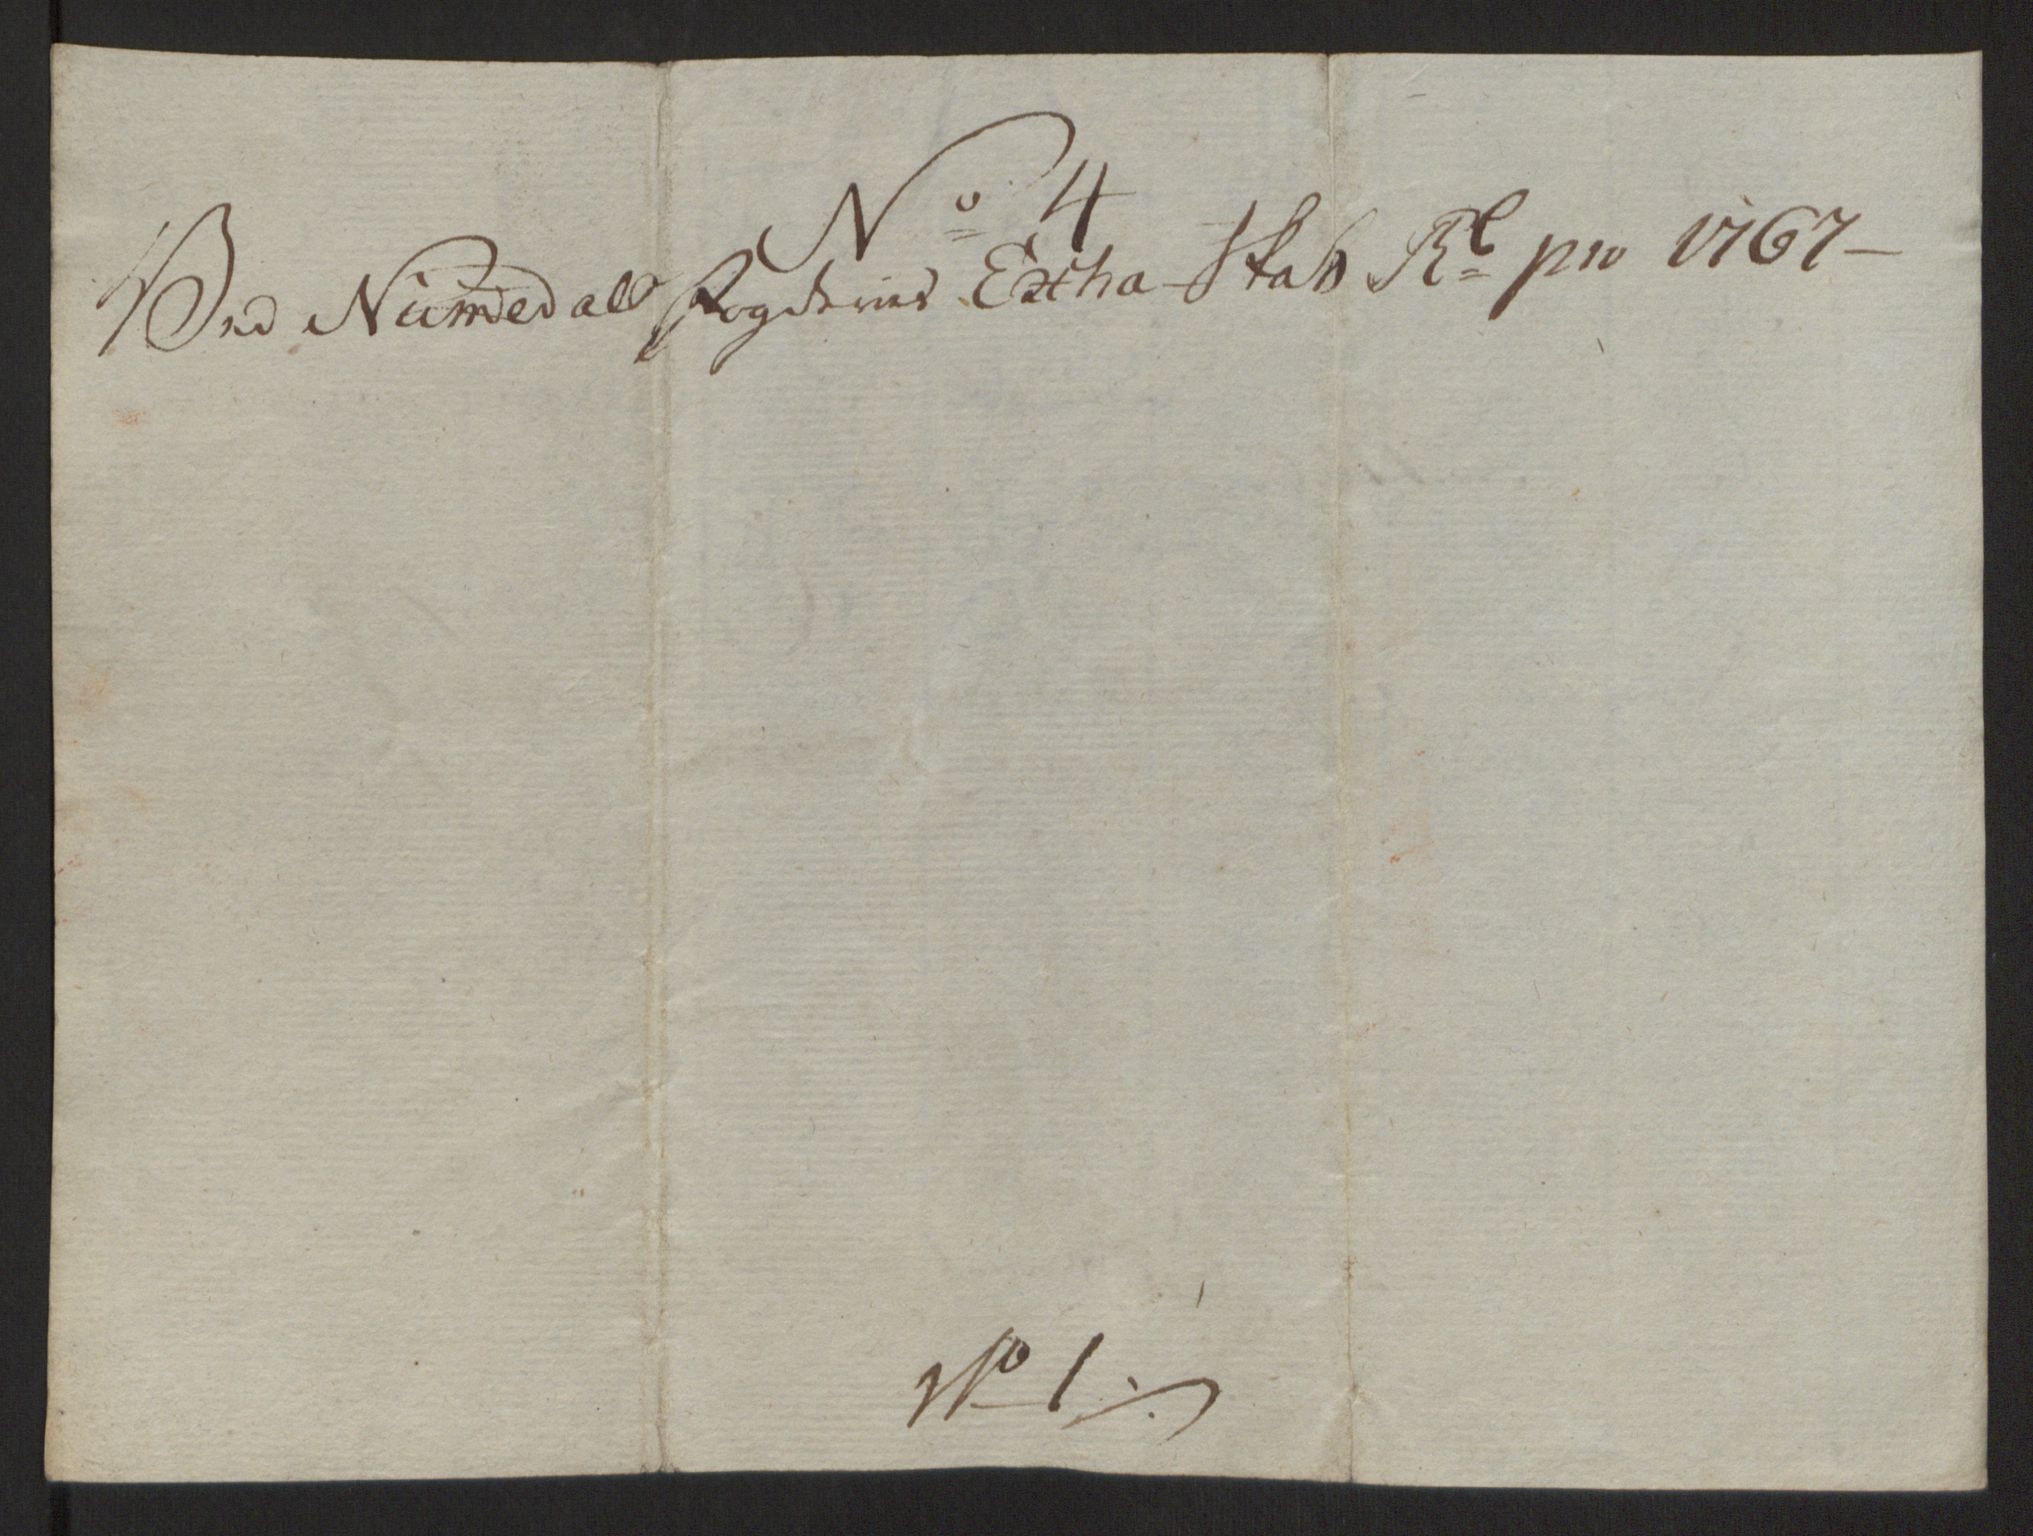 No 4
Ved Numedals Fogderies Extha Skatt Rl pro 1767 —
No 1